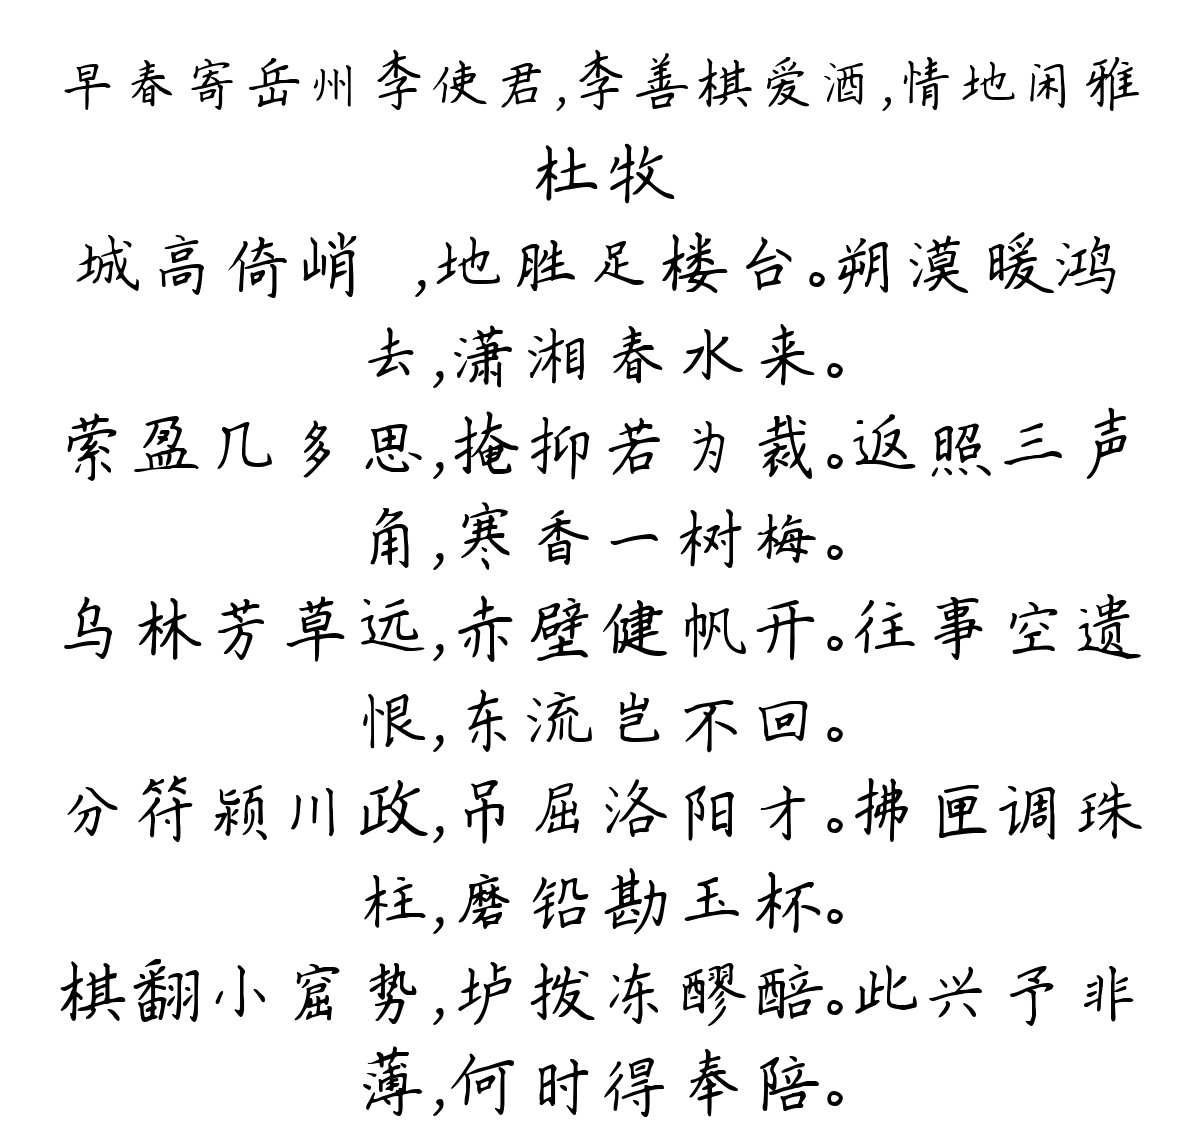 早春寄岳州李使君,李善棋爱酒,情地闲雅
杜牧
城高倚峭 ,地胜足楼台。朔漠暖鸿
去,潇湘春水来。
萦盈几多思,掩抑若为裁。返照三声
角,寒香一树梅。
乌林芳草远,赤壁健帆开。往事空遗
恨,东流岂不回。
分符颍川政,吊屈洛阳才。拂匣调珠
柱,磨铅勘玉杯。
棋翻小窟势,垆拨冻醪醅。此兴予非
薄,何时得奉陪。